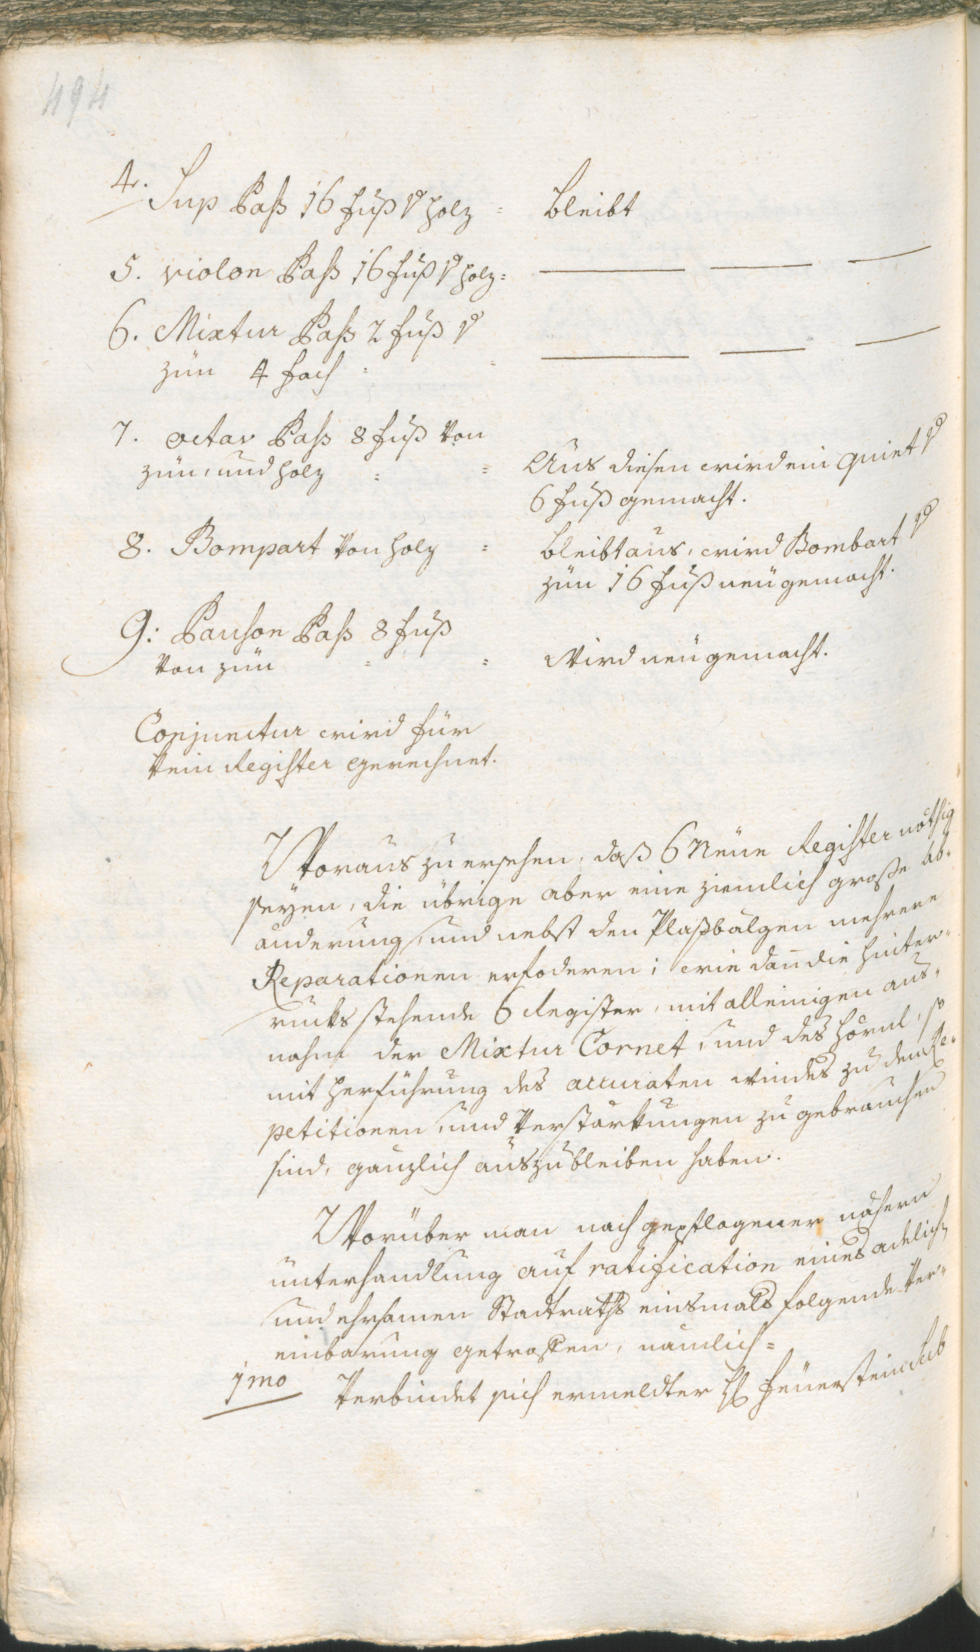 494
4. Sup Baß 16 fuß v holz = bleibt
5. violon Baß 16 fuß v holz =
6. Mixtur Baß 2 fuß v
zün 4 fach
7. octav Baß 8 fuß von
zün, und holz = = Aus diesen wird ein quint v
6 fuß gemacht.
8. Bompart von holz = bleibt aus, wird Bombart v
zün 16 fuß neü gemacht.
9: Pauson Baß 8 fuß
von zün = = Wird neü gemacht.
Conjunctur wird für
kein Register gerechnet.
Woraus zu ersehen, daß 6 Neüe Register nöthig
seyen, die übrige aber eine ziemlich große ab-
änderung, und nebst den Plaßbälgen mehrere
Reparationen erfoderen; wie dañ die hinter-
rucks stehende 6 Register, mit alleinigen aus-
nahm der Mixtur Cornet, und des hörnl, so
mit herführung des accuraten windes zu den Re-
petitionen, und verstärkungen zu gebrauchen
sind, gänzlich auszubleiben haben.
Worüber man nach gepflogener nähern
unterhandlung auf ratification eines adelich
und ehrsamen Stadtraths einsmals folgende Ver-
einbarung getroffen, nämlich =
1mo Verbindet sich ermeldter H. Feüerstein Sub